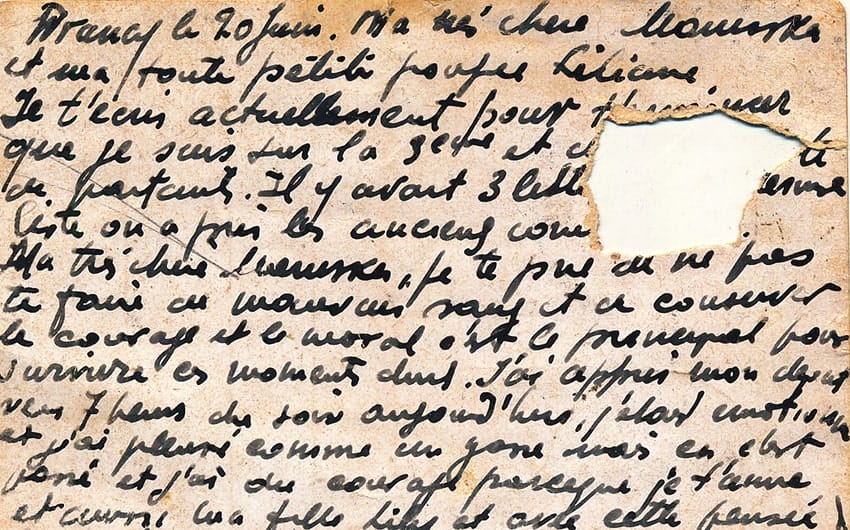 Drancy le 20 Juin. Ma très chère Mamuska
et ma toute petite poupée Liliane
Je t'écris actuellement pour
que je suis sur la 3ème et d té
de partants. Il y avait 3 liste
liste on a pris les anciens com
Ma très chère Mamuska, je te prie de ne pas
te faire de mauvais sang et de conserver
le courage et le moral c'est le principal pour
survivre ces moments durs. J'ai appris mon départ
vers 7 heures du soir aujourd'hui, j'étais
et j'ai pleuré comme un gosse mais ça c'est
passé et j'ai du courage parceque je t'aime
et aussi ma fille Lily et avec cette pensée